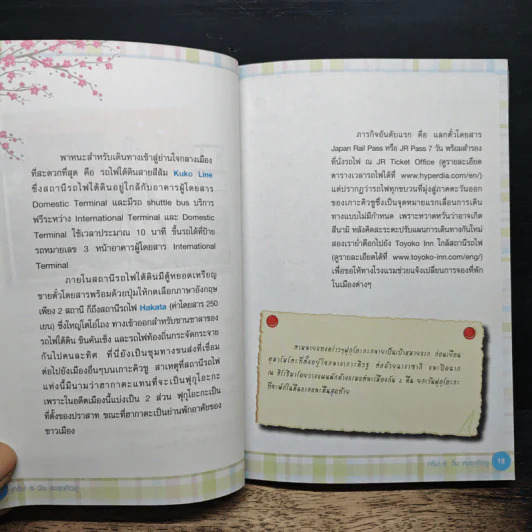 พาหนะสำหรับเดินทางเข้าสู่ย่านใจกลางเมือง
ที่สะดวกที่สุด คือ รถไฟใต้ดินสายสีส้ม Kuko Line
ซึ่งสถานีรถไฟใต้ดินอยู่ใกล้กับอาคารผู้โดยสาร
Domestic Terminal และมีรถ shuttle bus บริการ
ฟรีระหว่าง International Terminal และ Domestic
Terminal ใช้เวลาประมาณ 10 นาที ขึ้นรถได้ที่ป้าย
รถหมายเลข 3 หน้าอาคารผู้โดยสาร International
Terminal
ภายในสถานีรถไฟใต้ดินมีตู้หยอดเหรียญ
ขายตั๋วโดยสารพร้อมด้วยปุ่มให้กดเลือกภาษาอังกฤษ
เพียง 2 สถานี ก็ถึงสถานีรถไฟ Hakata (ค่าโดยสาร 250
เยน) ซึ่งใหญ่โตโอ่โถง ทางเข้าออกสำหรับชานชาลาของ
รถไฟใต้ดิน ชินคันเซ็ง และรถไฟท้องถิ่นกระจัดกระจาย
กันไปคนละทิศ ที่นี่ยังเป็นชุมทางขนส่งที่เชื่อม
ต่อไปยังเมืองอื่นๆบนเกาะคิวชู สาเหตุที่สถานีรถไฟ
แห่งนี้มีนามว่าฮากาตะแทนที่จะเป็นฟุกุโอะกะ
เพราะในอดีตเมืองนี้แบ่งเป็น 2 ส่วน ฟุกุโอะกะเป็น
ที่ตั้งของปราสาท ขณะที่ฮากาตะเป็นย่านพักอาศัยของ
ชาวเมือง
ภารกิจอันดับแรก คือ แลกตั๋วโดยสาร
Japan Rail Pass หรือ JR Pass 7 วัน พร้อมสำรอง
ที่นั่งรถไฟ ณ JR Ticket Office (ดูรายละเอียด
ตารางเวลารถไฟได้ที่ www.hyperdia.com/en/)
แต่ปรากฏว่ารถไฟทุกขบวนที่มุ่งสู่ภาคตะวันออก
ของเกาะคิวชูซึ่งเป็นจุดหมายแรกเลื่อนการเดิน
ทางแบบไม่มีกำหนด เพราะหวาดหวั่นว่าอาจเกิด
สึนามิ หลังคิดสะระตะปรับแผนการเดินทางกันใหม่
สองเราย่ำต๊อกไปยัง Toyoko Inn ใกล้สถานีรถไฟ
(ดูรายละเอียดได้ที่ www.toyoko-inn.com/eng/)
เพื่อขอให้ทางโรงแรมช่วยแจ้งเปลี่ยนการจองที่พัก
ในเมืองต่างๆ
13